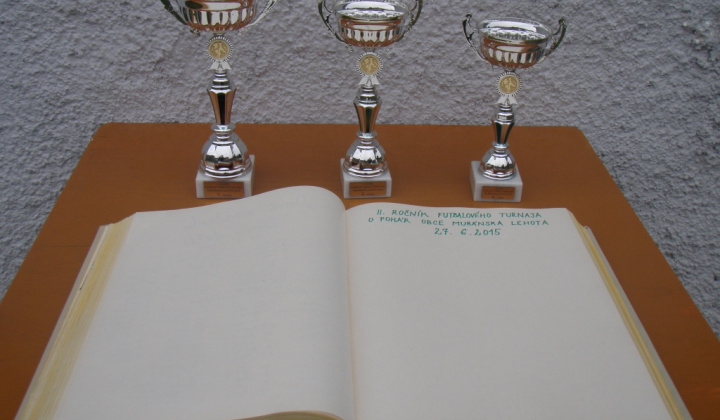 II. ROČNÍK FUTBALOVÉHO TURNAJA
O POHÁR OBCE MURÁNSKA LEHOTA
27. 6. 2015